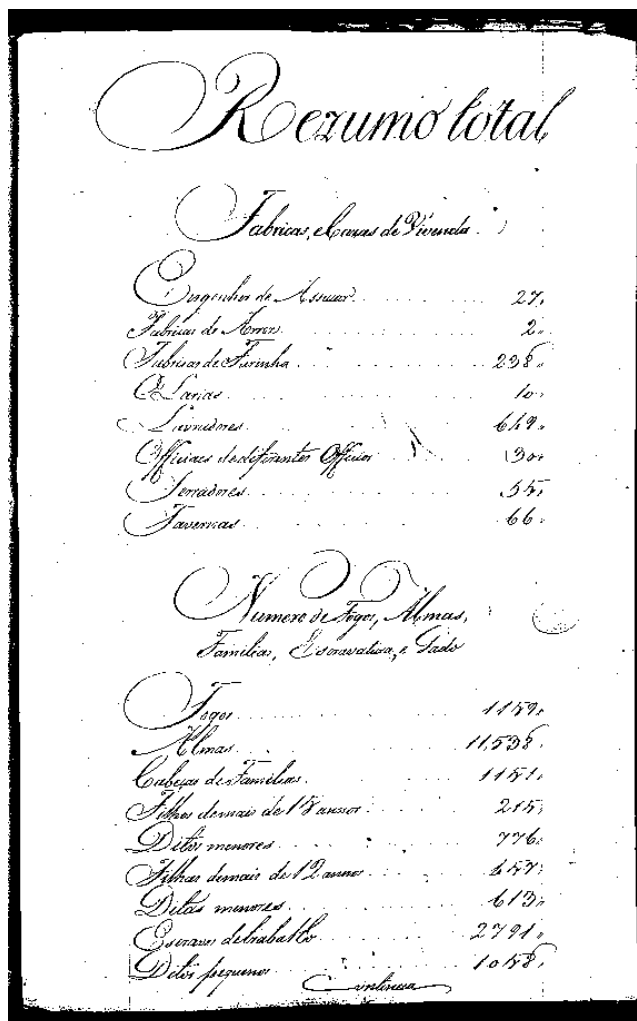 Rezumo total
Fabricas, e Cazas de Vivenda
Engenhos de Assucar 27
Fabricas de Arros 2
Fabricas de Farinha 238
Olarias 10
Lavradores 649
Officiaes de differentes Officios 30
Serradores 55
Tavernas 66
Numero de Fogos, Almas,
Familias, Escravatura, e Gado
Fogos 1159
Almas 11,538
Cabeças de Familias 1151
Filhos demais de 15 annos 215
Ditos menores 776
Filhas demais de 12 annos 657
Ditas menores 613
Escravos de trabalho 2791
Ditos pequenos 1058
Continua